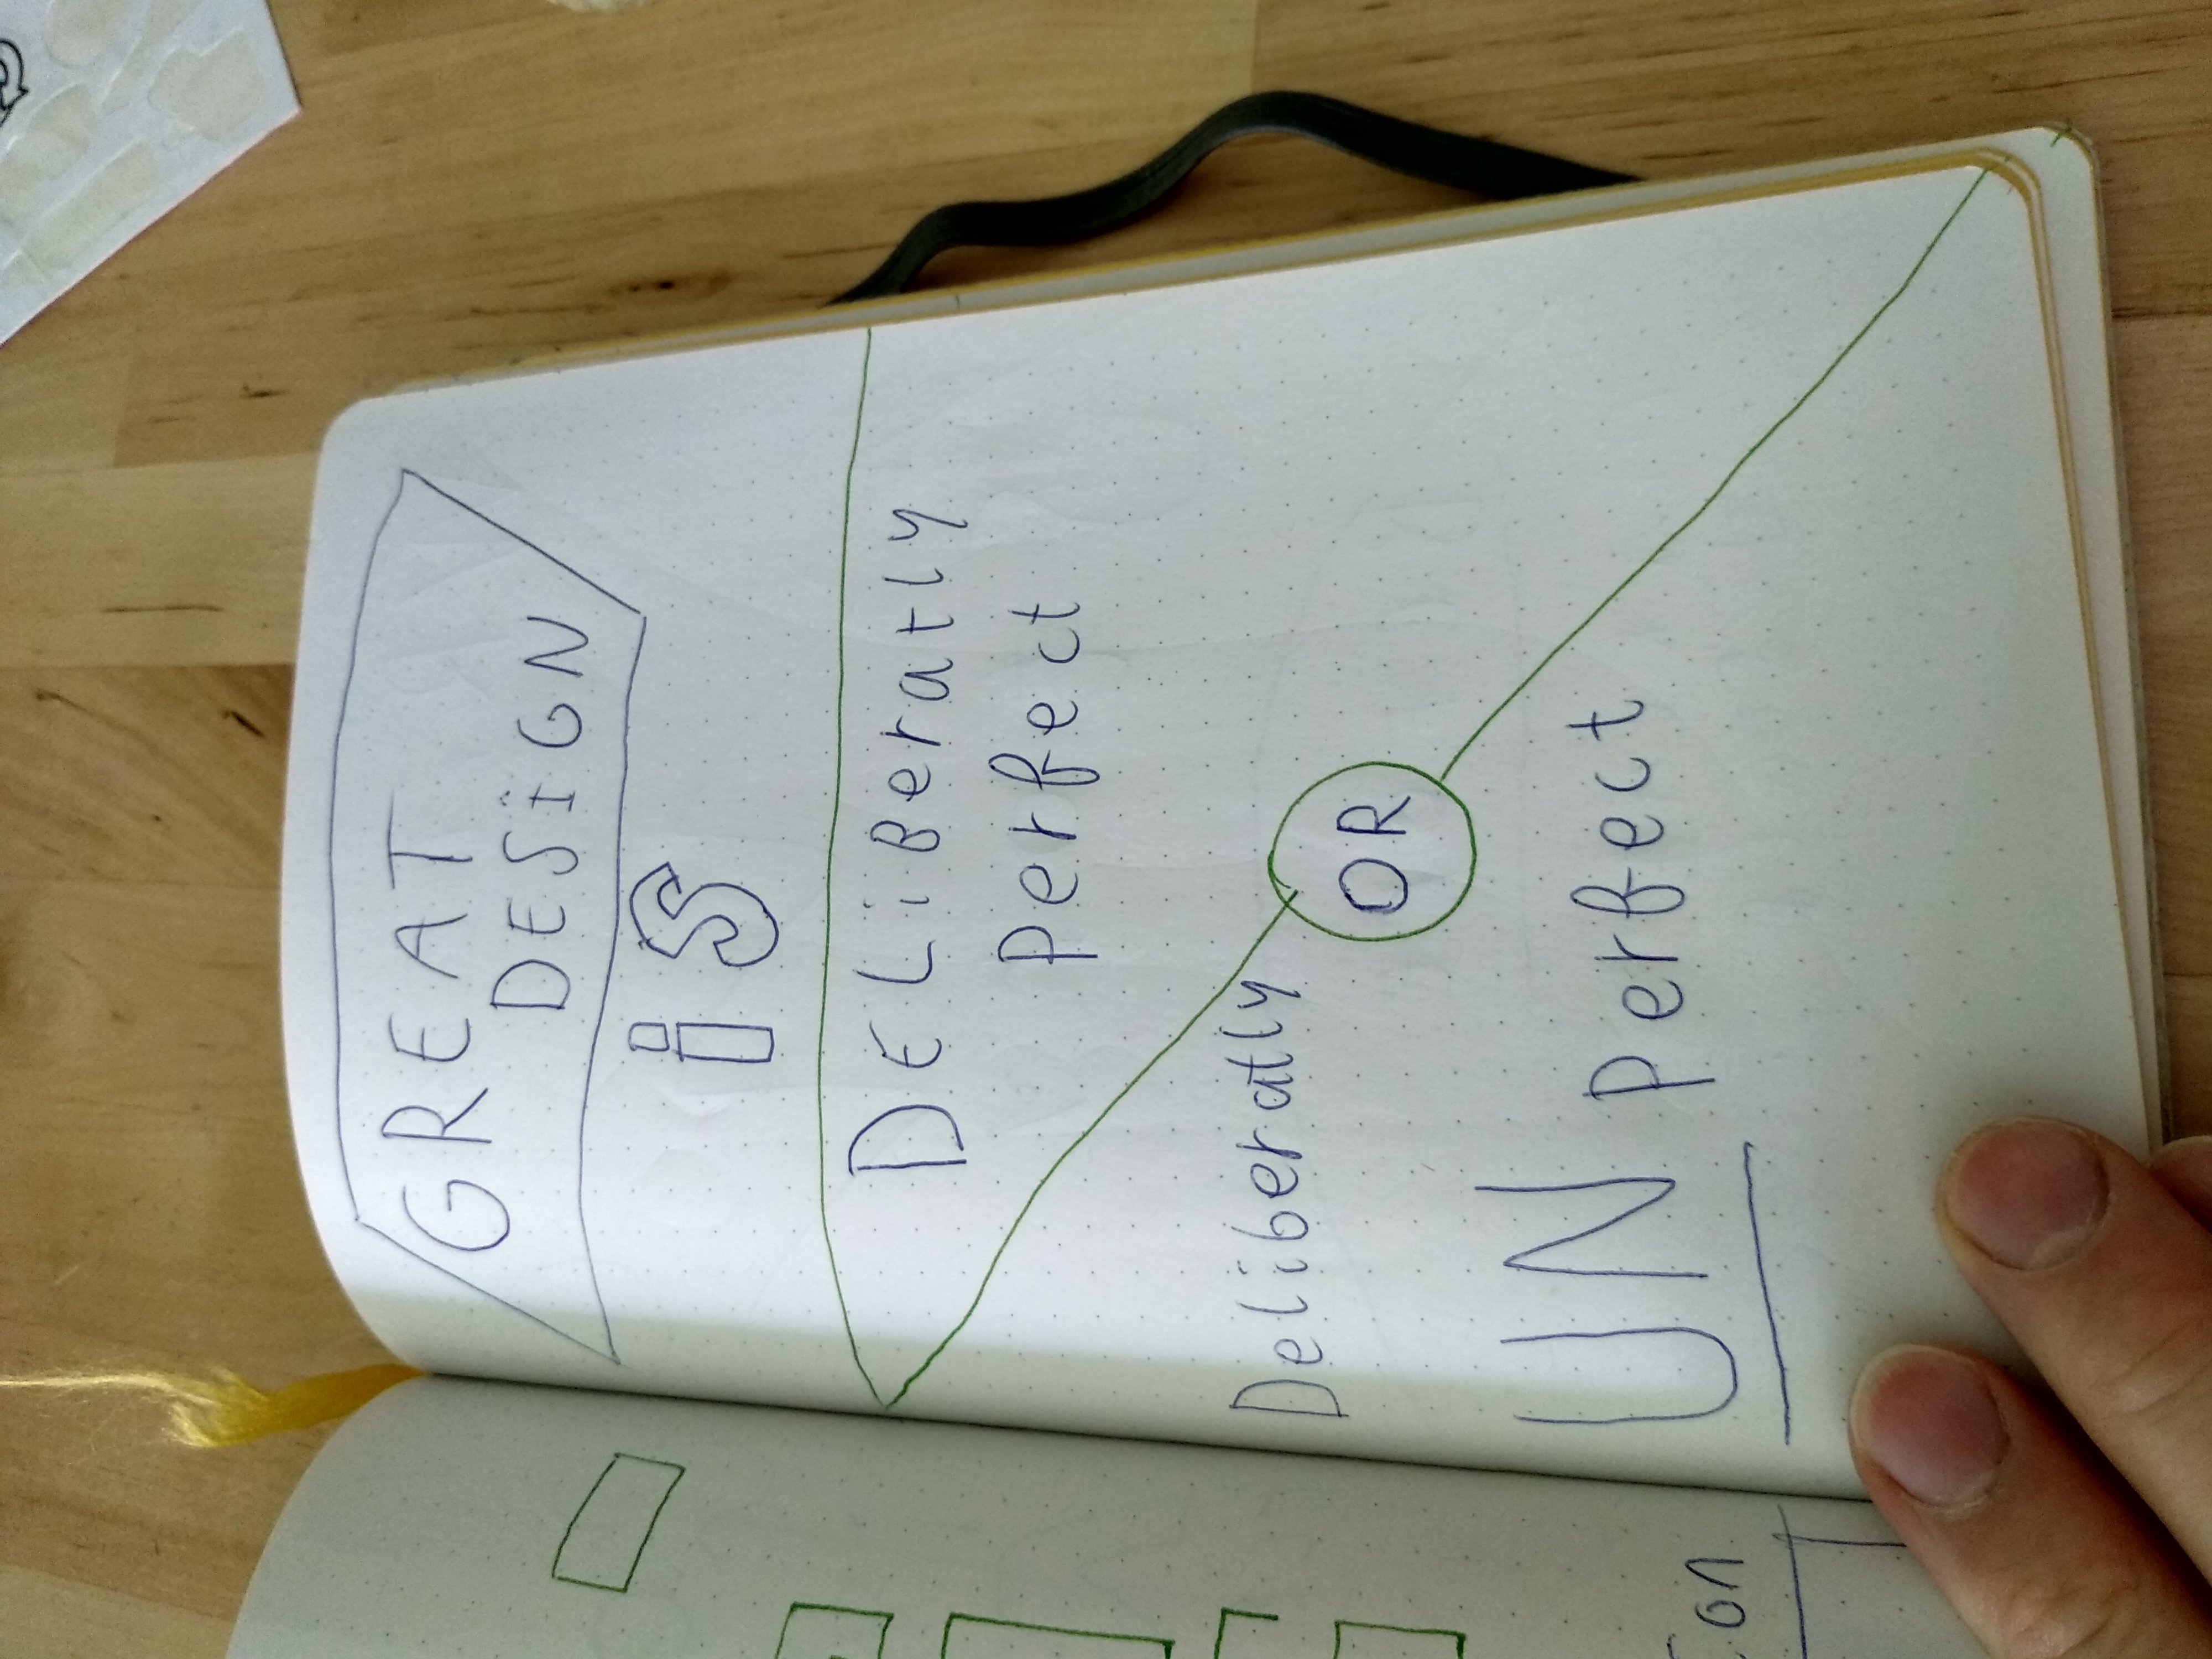 GREAT
DESiGN
iS
DELiBeratly
Perfect
OR
Deliberatly
UN Perfect